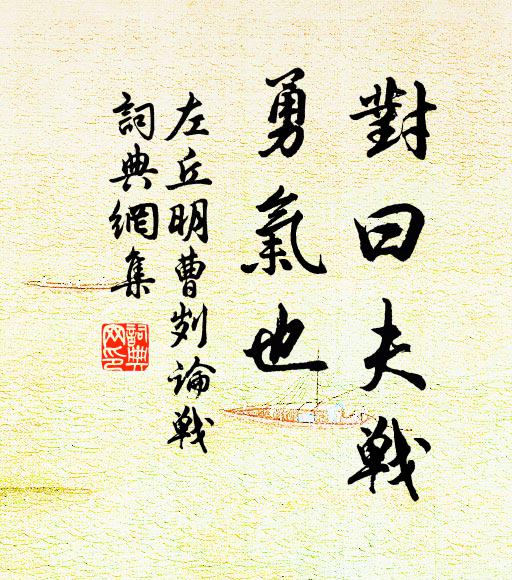 對曰夫戰
勇氣也
左丘明曹刿論戰
詞典網集
詞典網印